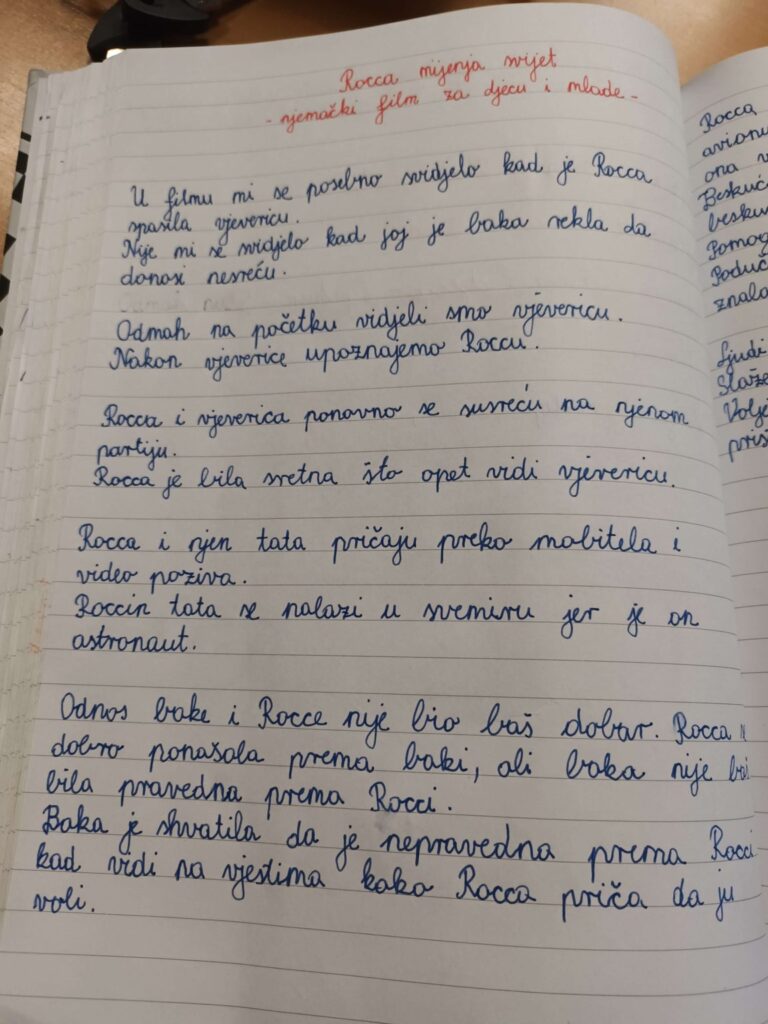 Rocca mijenja svijet
- njemački film za djecu i mlade -
U filmu mi se posebno svidjelo kad je Rocca
spasila vjevericu.
Nije mi se svidjelo kad joj je baka rekla da
donosi nesreću.
Odmah na početku vidjeli smo vjevericu.
Nakon vjeverice upoznajemo Roccu.
Rocca i vjeverica ponovno se susreću na njenom
partiju.
Rocca je bila sretna što opet vidi vjevericu.
Rocca i njen tata pričaju preko mobitela i
video poziva.
Roccin tata se nalazi u svemiru jer je on
astronaut.
Odnos bake i Rocce nije bio baš dobar. Rocca
dobro ponašala prema baki, ali baka nije
bila pravedna prema Rocci.
Baka je shvatila da je nepravedna prema Rocci
kad vidi na vjestima kako Rocca priča da ju
voli.
Rocca
ona
Ljudi